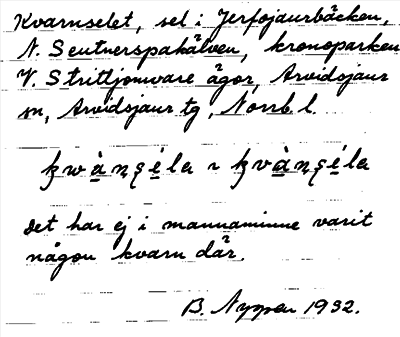 Kvarnselet, sel i Jerfojaurbäcken,
N. Seutnerspakälven, kronoparken
V. Strittjomvare ägor, Arvidsjaur
sn, Arvidsjaur tg, Norrb. l.
Det har ej i mannaminne varit
någon kvarn där.
B. Nyman 1932.